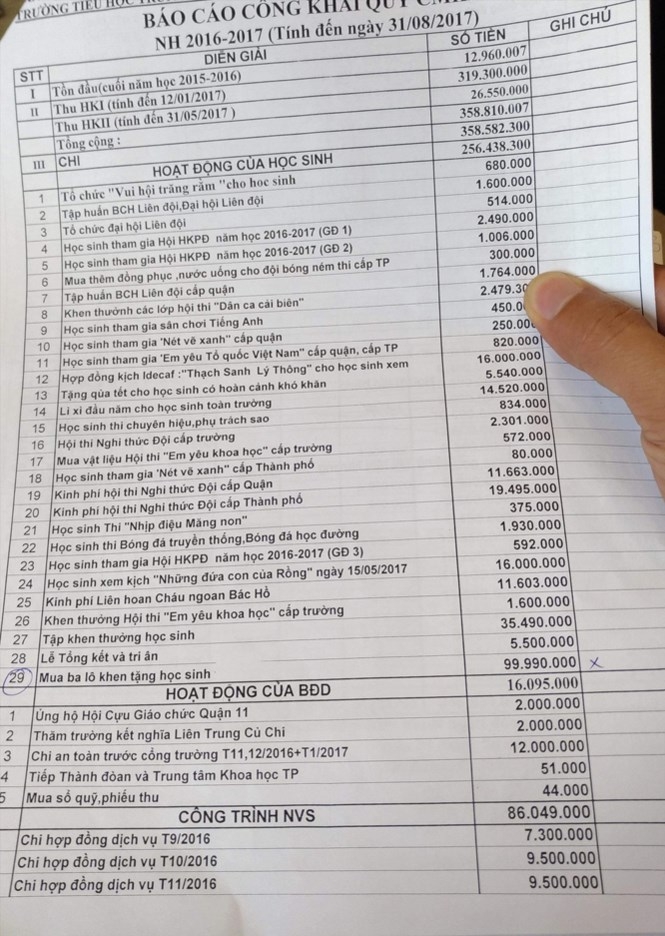 TRƯỜNG TIỂU HỌC
BÁO CÁO CÔNG KHAI QUỸ
NH 2016-2017 (Tính đến ngày 31/08/2017)
STT DIỄN GIẢI SỐ TIỀN GHI CHÚ
I Tồn đầu(cuối năm học 2015-2016) 12.960.007
II Thu HKI (tính đến 12/01/2017) 319.300.000
Thu HKII (tính đến 31/05/2017 ) 26.550.000
Tổng cộng : 358.810.007
III CHI 358.582.300
HOẠT ĐỘNG CỦA HỌC SINH 256.438.300
1 Tổ chức "Vui hội trăng rằm "cho hoc sinh 680.000
2 Tập huấn BCH Liên đội,Đại hội Liên đội 1.600.000
3 Tổ chức đại hội Liên đội 514.000
4 Học sinh tham gia Hội HKPĐ năm học 2016-2017 (GĐ 1) 2.490.000
5 Học sinh tham gia Hội HKPĐ năm học 2016-2017 (GĐ 2) 1.006.000
6 Mua thêm đồng phục ,nước uống cho đội bóng ném thi cấp TP 300.000
7 Tập huấn BCH Liên đội cấp quận 1.764.000
8 Khen thưởnh các lớp hội thi "Dân ca cải biên" 2.479.30
9 Học sinh tham gia sân chơi Tiếng Anh 450.0
10 Học sinh tham gia 'Nét vẽ xanh" cấp quận 250.000
11 Học sinh tham gia 'Em yêu Tổ quốc Việt Nam" cấp quận, cấp TP 820.000
12 Hợp đồng kịch Idecaf :"Thạch Sanh Lý Thông" cho học sinh xem 16.000.000
13 Tặng qùa tết cho học sinh có hoàn cảnh khó khăn 5.540.000
14 Lì xì đầu năm cho học sinh toàn trường 14.520.000
15 Học sinh thi chuyên hiệu,phụ trách sao 834.000
16 Hội thi Nghi thức Đội cấp trường 2.301.000
17 Mua vật liệu Hội thi "Em yêu khoa học" cấp trường 572.000
18 Học sinh tham gia 'Nét vẽ xanh" cấp Thành phố 80.000
19 Kinh phí hội thi Nghi thức Đội cấp Quận 11.663.000
20 Kinh phí hội thi Nghi thức Đội cấp Thành phố 19.495.000
21 Học sinh Thi "Nhịp điệu Măng non" 375.000
22 Học sinh thi Bóng đá truyền thống,Bóng đá học đường 1.930.000
23 Học sinh tham gia Hội HKPĐ năm học 2016-2017 (GĐ 3) 592.000
24 Học sinh xem kịch "Những đứa con của Rồng" ngày 15/05/2017 16.000.000
25 Kinh phí Liên hoan Cháu ngoan Bác Hồ 11.603.000
26 Khen thưởng Hội thi "Em yêu khoa học" cấp trường 1.600.000
27 Tập khen thưởng học sinh 35.490.000
28 Lễ Tổng kết và tri ân 5.500.000
29 Mua ba lô khen tặng học sinh 99.990.000 x
HOẠT ĐỘNG CỦA BĐD 16.095.000
1 Ủng hộ Hội Cựu Giáo chức Quận 11 2.000.000
2 Thăm trường kết nghĩa Liên Trung Củ Chi 2.000.000
3 Chi an toàn trước cổng trường T11,12/2016+T1/2017 12.000.000
4 Tiếp Thành đòan và Trung tâm Khoa học TP 51.000
5 Mua sổ quỹ,phiếu thu 44.000
CÔNG TRÌNH NVS 86.049.000
Chi hợp đồng dịch vụ T9/2016 7.300.000
Chi hợp đồng dịch vụ T10/2016 9.500.000
Chi hợp đồng dịch vụ T11/2016 9.500.000